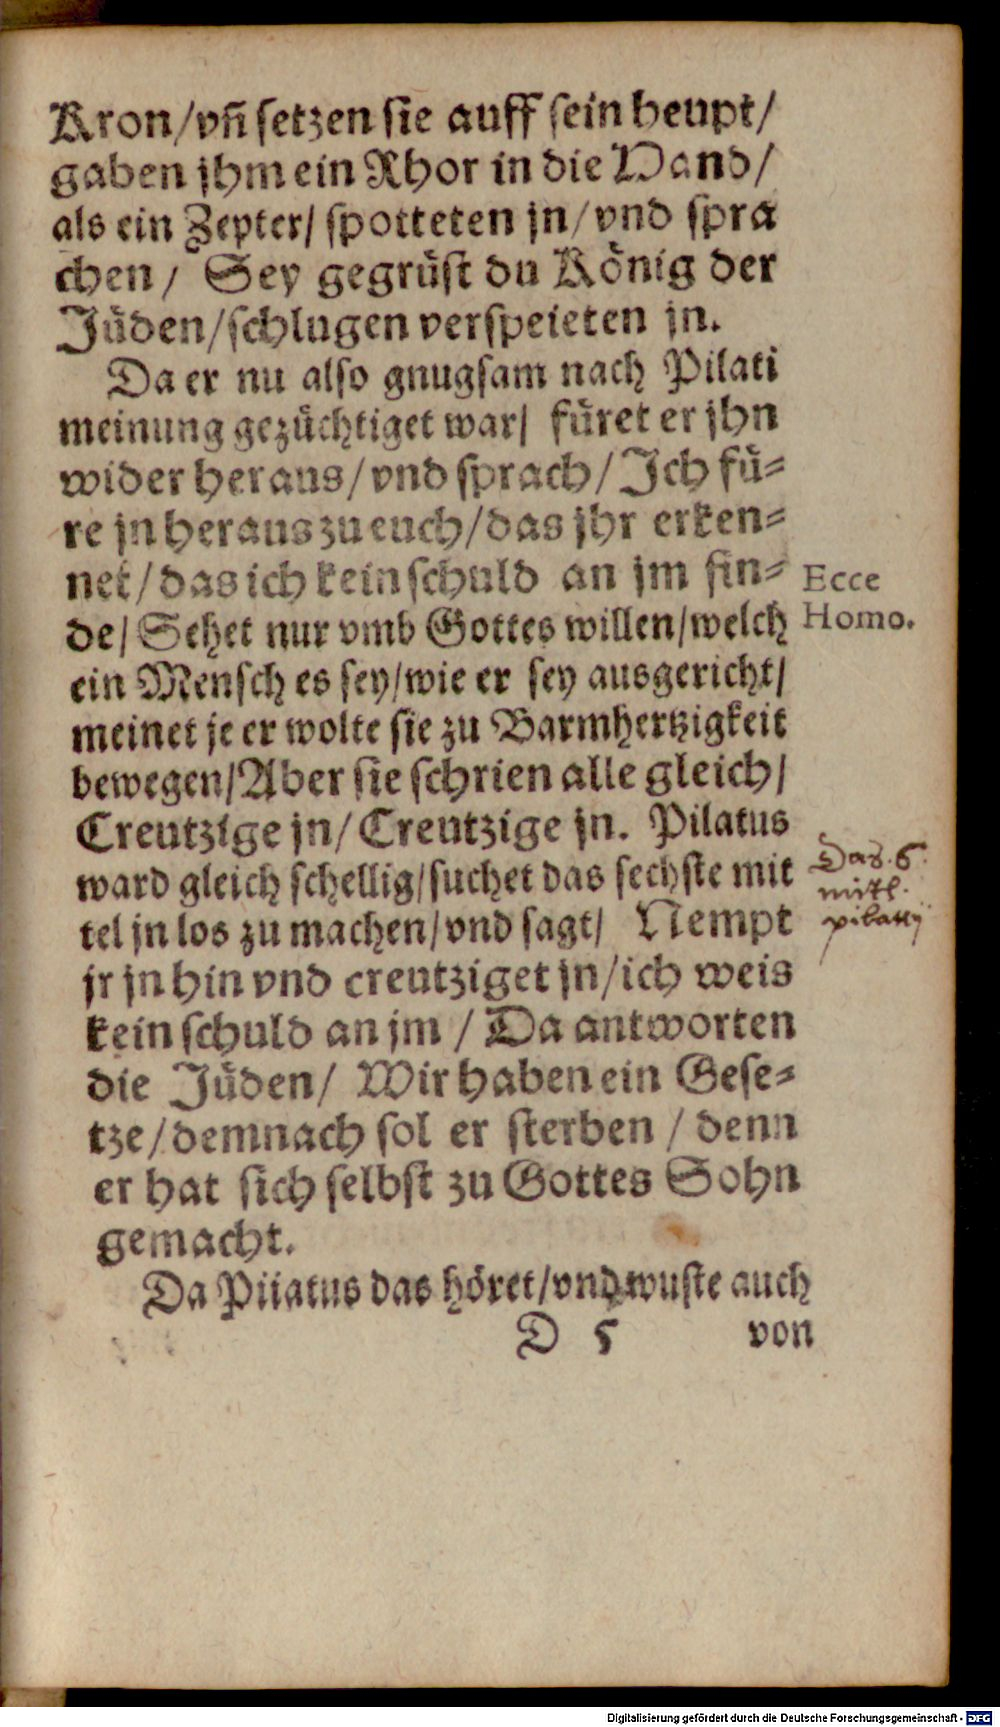 Kron/vñ setzen sie auff sein heupt/
gaben jhm ein Rhor in die Hand/
als ein Zepter/ spotteten jn/vnd spra
chen/ Sey gegrüst du König der
Jüden/schlugen verspeieten jn.
Da er nu also gnugsam nach Pilati
meinung gezüchtiget war/ füret er jhn
wider heraus/vnd sprach/Ich fü-
re jn heraus zu euch/das jhr erken-
net/das ich kein schuld an jm fin-
de/ Sehet nur vmb Gottes willen/welch
Ecce
Homo.
ein Mensch es sey/wie er sey ausgericht/
meinet je er wolte sie zu Barmhertzigkeit
bewegen/Aber sie schrien alle gleich/
Creutzige jn/Creutzige jn. Pilatus
ward gleich schellig/suchet das sechste mit
tel jn los zu machen/vnd sagt/ Nempt
Das .6.
mitl.
pilatty
jr jn hin vnd creutziget jn/ich weis
kein schuld an jm / Da antworten
die Jüden/ Wir haben ein Gese-
tze/demnach sol er sterben / denn
er hat sich selbst zu Gottes Sohn
gemacht.
Da Piiatus das höret/vnd wuste auch
D 5 von
Digitalisierung gefördert durch die Deutsche Forschungsgemeinschaft - DFG